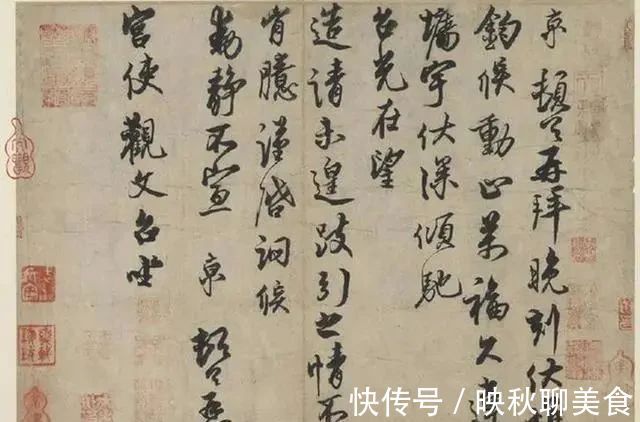 京 頓首再拜晚刻伏惟
鈞候動止萬福久違
牖宇伏深傾馳
台光在望
造請未遑跂引之情不
胷臆謹啓詢候
動靜不宣 京 頓首再
宮使觀文台坐
快传号 / 映秋聊美食